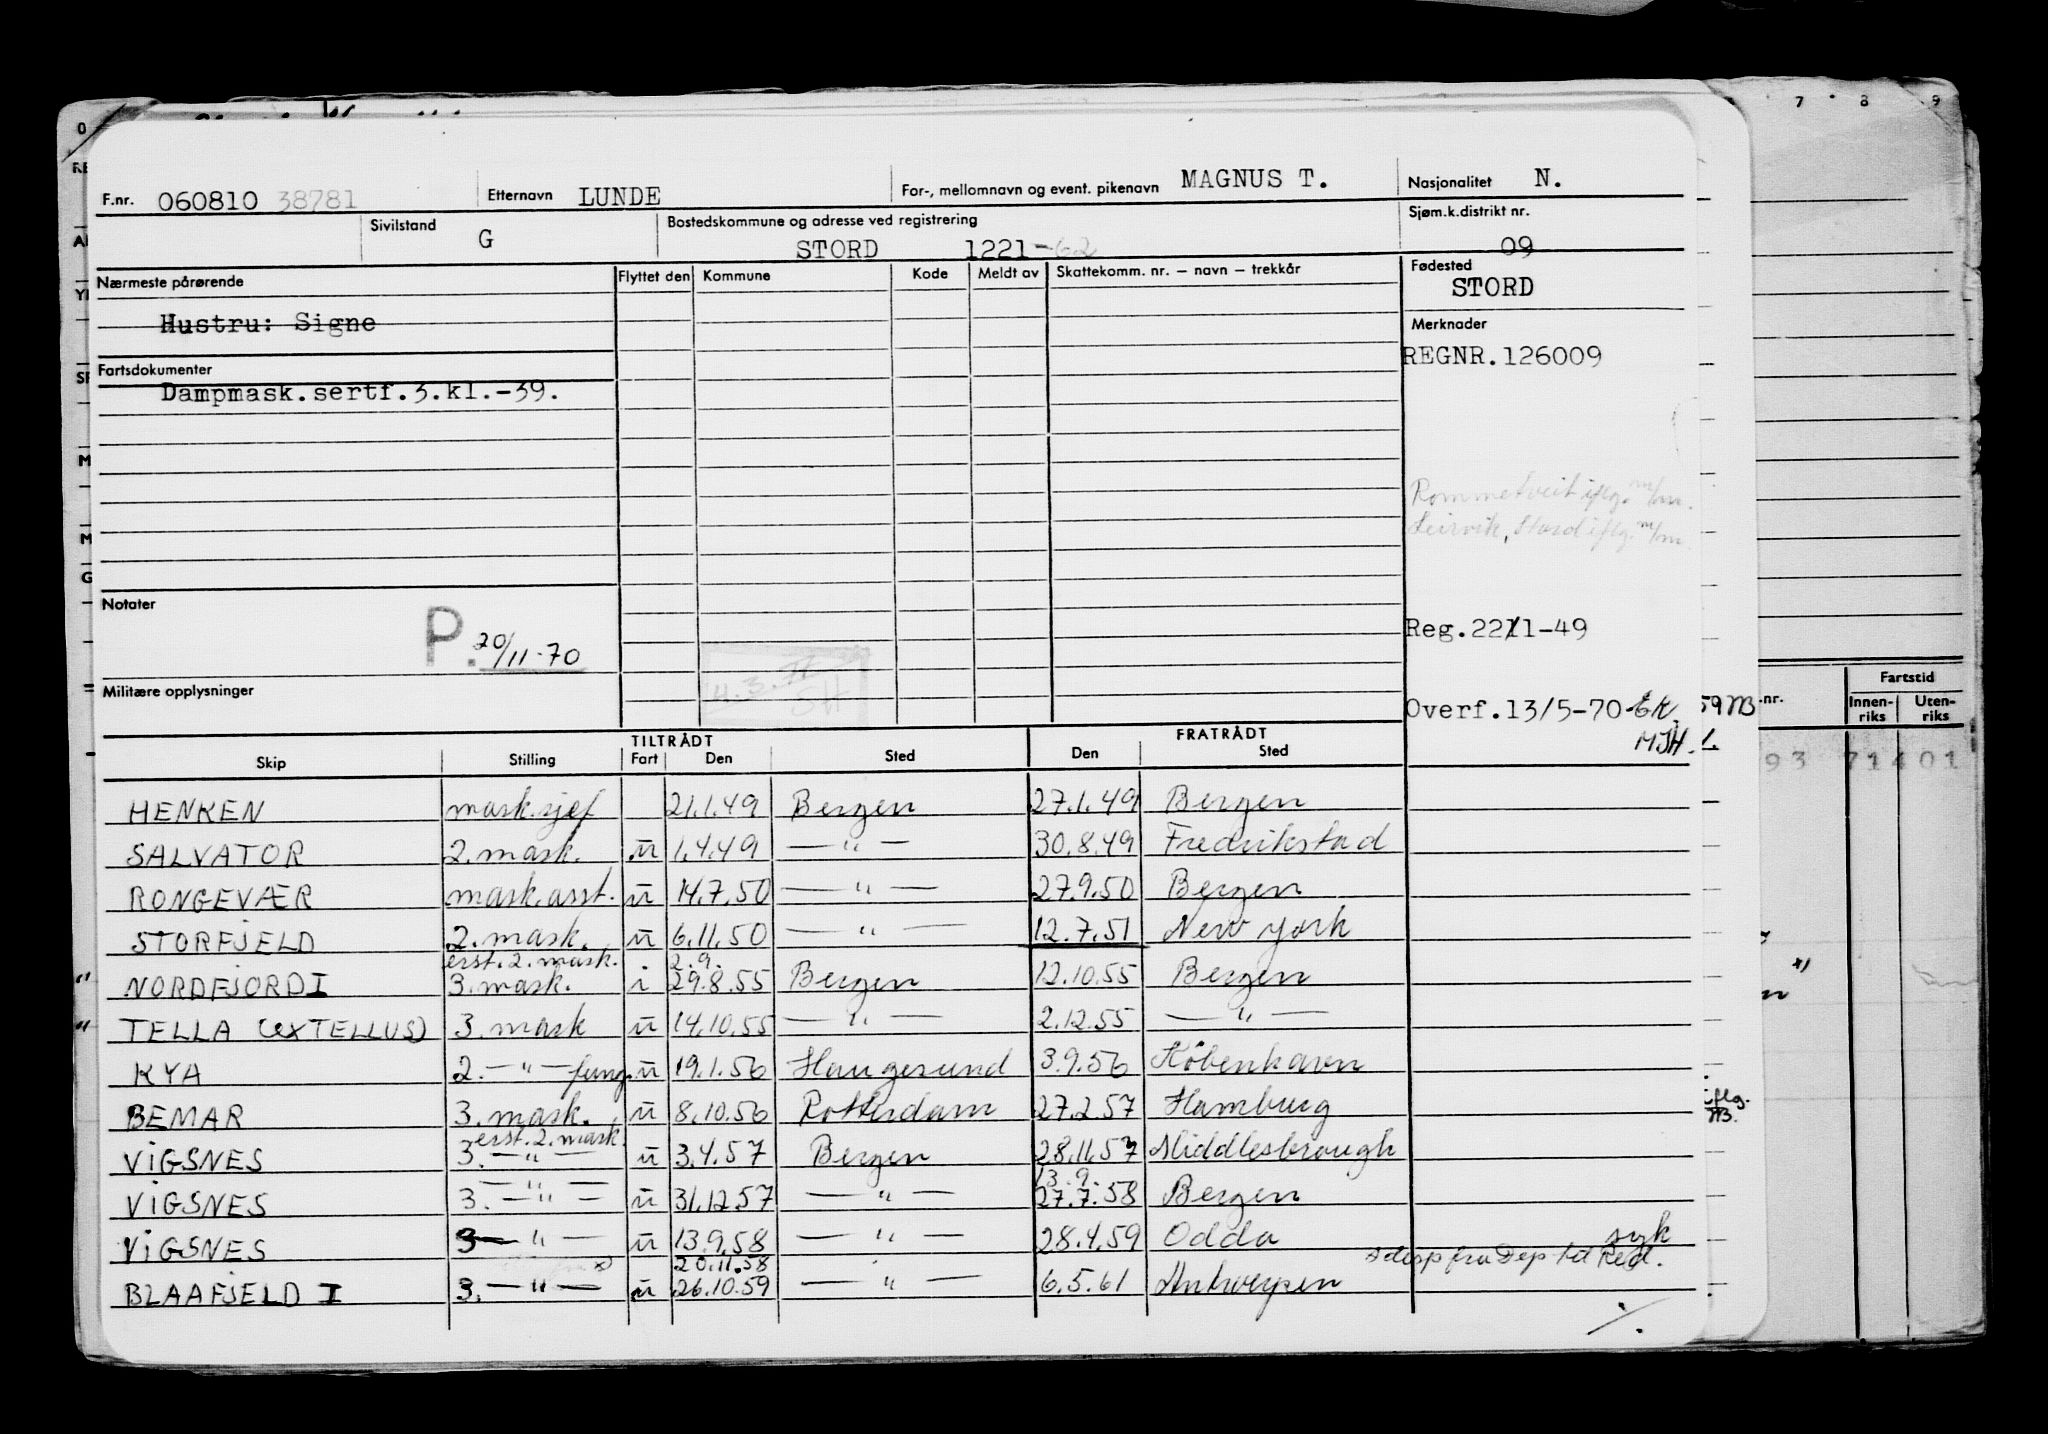 0 7 8 9
F.nr. 060810 38781 Etternavn LUNDE For-, mellomnavn og event. pikenavn MAGNUS T. Nasjonalitet N.
Sivilstand G Bostedskommune og adresse ved registrering STORD 1221-62 Sjøm.k.distrikt nr. 09
Nærmeste pårørende Flyttet den Kommune Kode Meldt av Skattekomm. nr. – navn – trekkår Fødested
STORD
Hustru: Signe Merknader
REGNR.126009
Fartsdokumenter
Dampmask.sertf.3.kl.-39.
Rommetveit iflg. m/m.
Leirvik, Stord iflg. m/m.
Notater
P. 20/11-70
Reg.22/1-49
Militære opplysninger
Overf.13/5-70 EK.
MJH.
59 .nr. Fartstid
Innen-riks Uten-riks
93 71401
TILTRÅDT FRATRÅDT
Skip Stilling Fart Den Sted Den Sted
HENKEN mask.sjef 21.1.49 Bergen 27.1.49 Bergen
SALVATOR 2. mask. u 1.4.49 — " — 30.8.49 Fredrikstad
RONGEVÆR mask.asst. u 14.7.50 — " — 27.9.50 Bergen
STORFJELD 2. mask. u 6.11.50 — " — 12.7.51 New York
erst. 2. mask. 2.9.
" NORDFJORD I 3. mask. i 29.8.55 Bergen 12.10.55 Bergen
" TELLA (ex TELLUS) 3. mask u 14.10.55 — " — 2.12.55 — " —
KYA 2. — " — fung. u 19.1.56 Haugesund 3.9.56 København
BEMAR 3. mask. u 8.10.56 Rotterdam 27.2.57 Hamburg
erst. 2. mask.
VIGSNES 3. — " — u 3.4.57 Bergen 28.11.57 Middlesbrough
— " — 13.9.
VIGSNES 3. — " — u 31.12.57 — " — 27.7.58 Bergen
VIGSNES 3 — " — u 13.9.58 — " — 28.4.59 Odda syk
20.11.58
BLAAFJELD I 3. — " — u 26.10.59 — " — 6.5.61 Antwerpen
./.